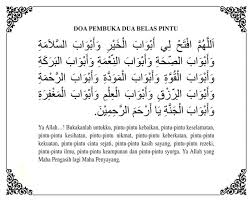 DOA PEMBUKA DUA BELAS PINTU
اَللّٰهُمَّ افْتَحْ لِيْ أَبْوَابَ الْخَيْرِ وَأَبْوَابَ السَّلَامَةِ
وَأَبْوَابَ الصِّحَّةِ وَأَبْوَابَ النِّعْمَةِ وَأَبْوَابَ الْبَرَكَةِ
وَأَبْوَابَ الْقُوَّةِ وَأَبْوَابَ الْمَوَدَّةِ وَأَبْوَابَ الرَّحْمَةِ
وَأَبْوَابَ الرِّزْقِ وَأَبْوَابَ الْعِلْمِ وَأَبْوَابَ الْمَغْفِرَةِ
وَأَبْوَابَ الْجَنَّةِ يَا أَرْحَمَ الرَّاحِمِيْنَ.
Ya Allah...! Bukakanlah untukku, pintu-pintu kebaikan, pintu-pintu keselamatan,
pintu-pintu kesihatan, pintu-pintu nikmat, pintu-pintu keberkatan, pintu-pintu
kekuatan, pintu-pintu kasih sayang, pintu-pintu rahmat, pintu-pintu rezeki,
pintu-pintu ilmu, pintu-pintu keampunan dan pintu-pintu syurga. Ya Allah yang
Maha Pengasih lagi Maha Penyayang.